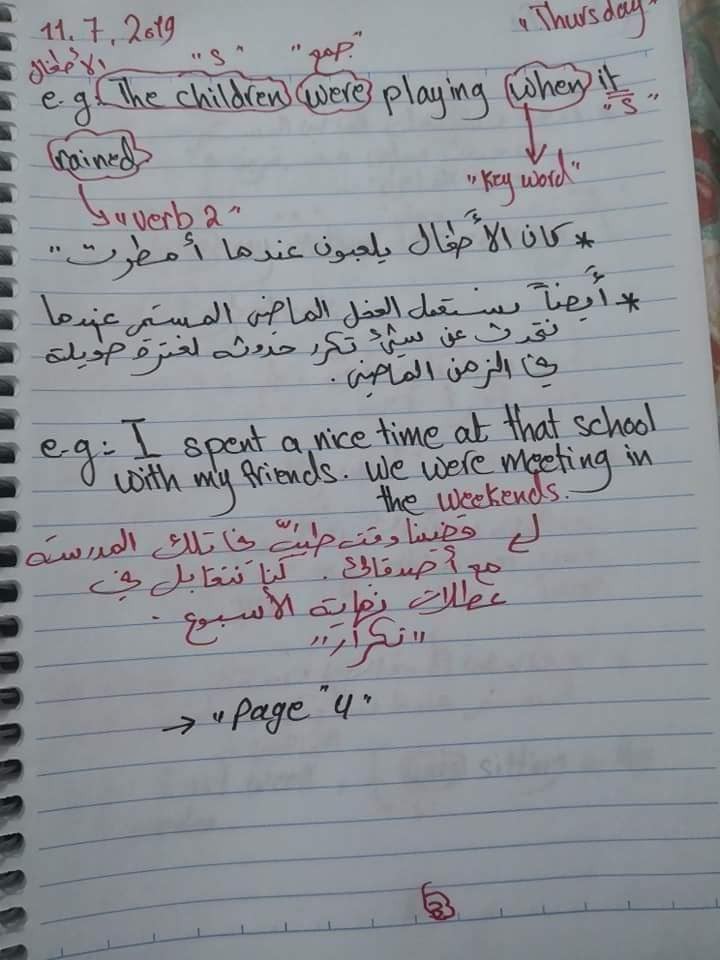 11.7.2019 "Thursday"
الأطفال "S" "جمع"
e.g: The children were playing when it
"S"
rained "Key word"
"verb 2"
* كان الأطفال يلعبون عندما أمطرت"
* أيضاً يستعمل الفعل الماضي المستمر عندما
نتحدث عن شيء تكرر حدوثه لفترة طويلة
في الزمن الماضي.
e.g: I spent a nice time at that school
with my friends. We were meeting in
the weekends.
قضينا وقت طيّب في تلك المدرسة
مع أصدقائي. كنا نتقابل في
عطلات نهاية الأسبوع.
"تكرار"
→ "Page "4"